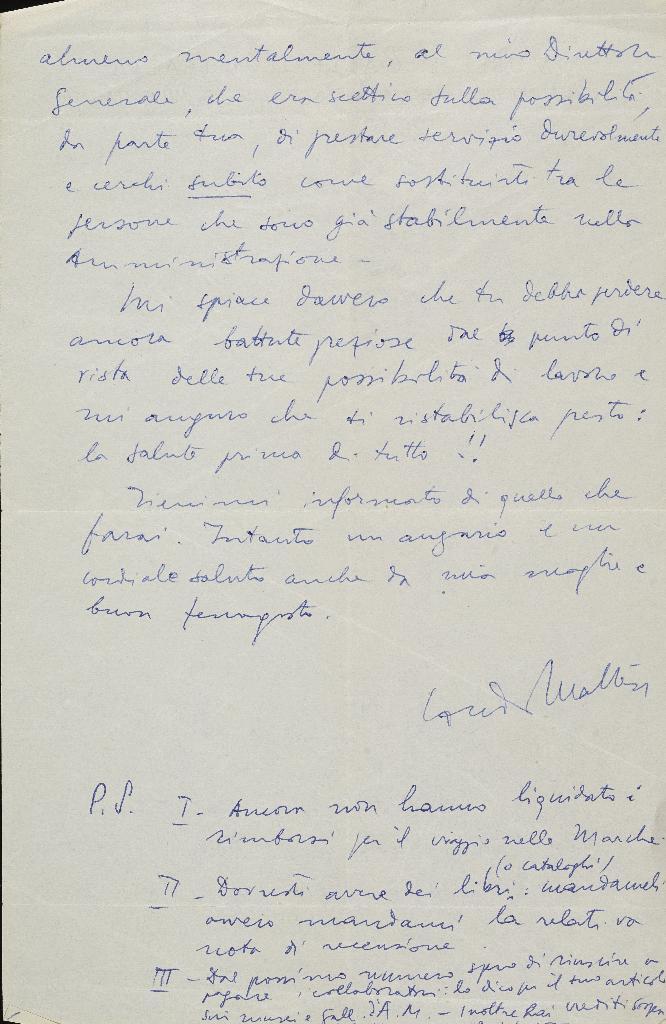 almeno mentalmente, al mio Direttore
Generale, che era scettico sulla possibilità,
da parte tua, di prestare servizio durevolmente
e cerchi subito come sostituirti tra le
persone che sono già stabilmente nella
Amministrazione -
Mi spiace davvero che tu debba perdere
ancora battute preziose dal punto di
vista delle tue possibilità di lavoro e
mi auguro che ti ristabilisca presto:
la salute prima di tutto!!
Tienimi informato di quello che
farai. Intanto un augurio e un
cordiale saluto anche da mia moglie e
buon ferragosto.
P.S. I - Ancora non hanno liquidato i
rimborsi per il viaggio nelle Marche.
(o cataloghi)
II - Dovresti avere dei libri: mandameli
ovvero mandami la relativa
nota di recensione.
III - Dal prossimo numero spero di riuscire a
pagare i collaboratori: lo dico per il tuo articolo
sui musei e Gall. d'A. M. - Inoltre hai